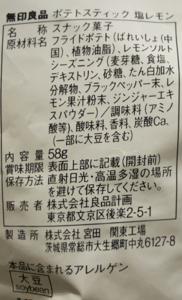 無印良品 ポテトスティック 塩レモン
名 称 スナック菓子
原材料名 フライドポテト(ばれいしょ(中
国)、植物油脂)、レモンソルト
シーズニング(麦芽糖、食塩、
デキストリン、砂糖、たん白加水
分解物、ブラックペッパー末、レ
モン果汁粉末、ジンジャーエキ
スパウダー)/調味料(アミノ
酸等)、酸味料、香料、炭酸Ca、
(一部に大豆を含む)
内 容 量 58g
賞味期限 表面上部に記載(開封前)
保存方法 直射日光・高温多湿の場所
を避けて保存してください。
販 売 者 株式会社良品計画
東京都文京区後楽2-5-1
製 造 所 株式会社 宮田 関東工場
茨城県常総市大生郷町中丸6127-8
本品に含まれるアレルゲン
大豆
soybean